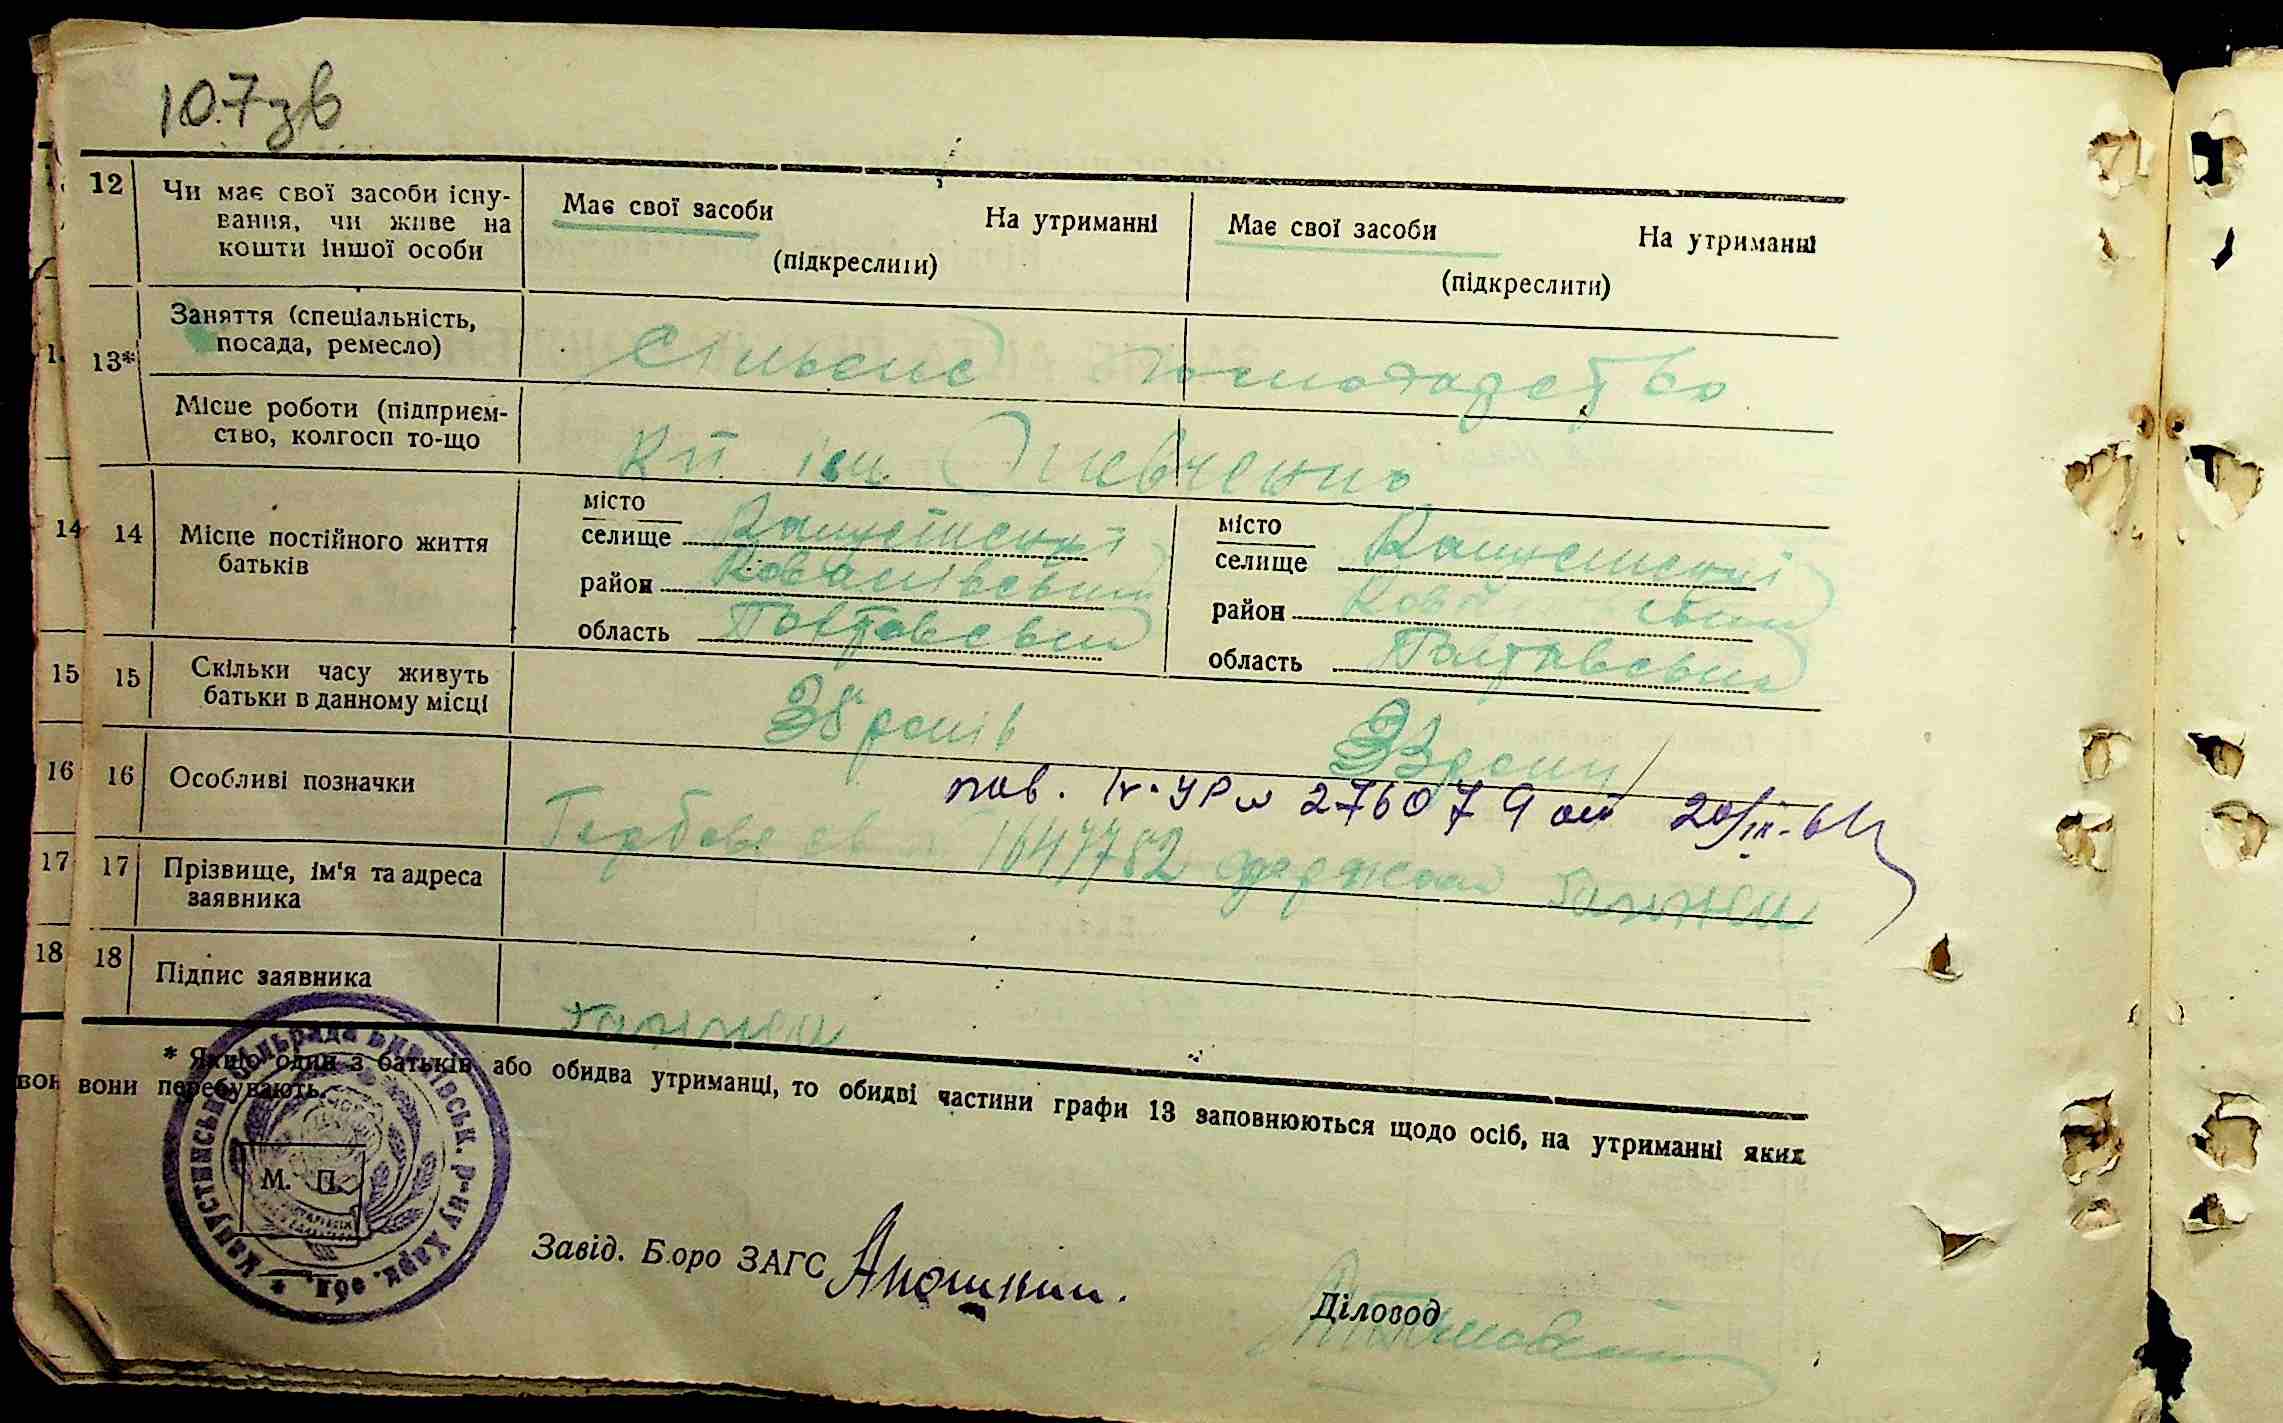 107зв
12 Чи має свої засоби існу-
вання, чи живе на
кошти іншої особи
Має свої засоби На утриманні
(підкреслити)
Має свої засоби На утриманні
(підкреслити)
13* Заняття (спеціальність,
посада, ремесло)
Сільське господарство
Місце роботи (підприєм-
ство, колгосп то-що
Кп ім Шевченко
14 14 Місце постійного життя
батьків
місто
селище Капустинский
район
область Полтавский
місто
селище Капустинский
район
область Полтавский
15 15 Скільки часу живуть
батьки в данному місці
38 років
33 роки
16 16 Особливі позначки
276079 20/IX-61
Гербове св 1647782 одержала Ганжа
17 17 Прізвище, ім'я та адреса
заявника
18 18 Підпис заявника
Ганжа
* Якщо один з батьків або обидва утриманці, то обидві частини графи 13 заповнюються щодо осіб, на утриманні яких
вони перебувають.
М. П.
Капустинськ. сільрада р-ну Харк. обл. *
Завід. Бюро ЗАГС
Діловод